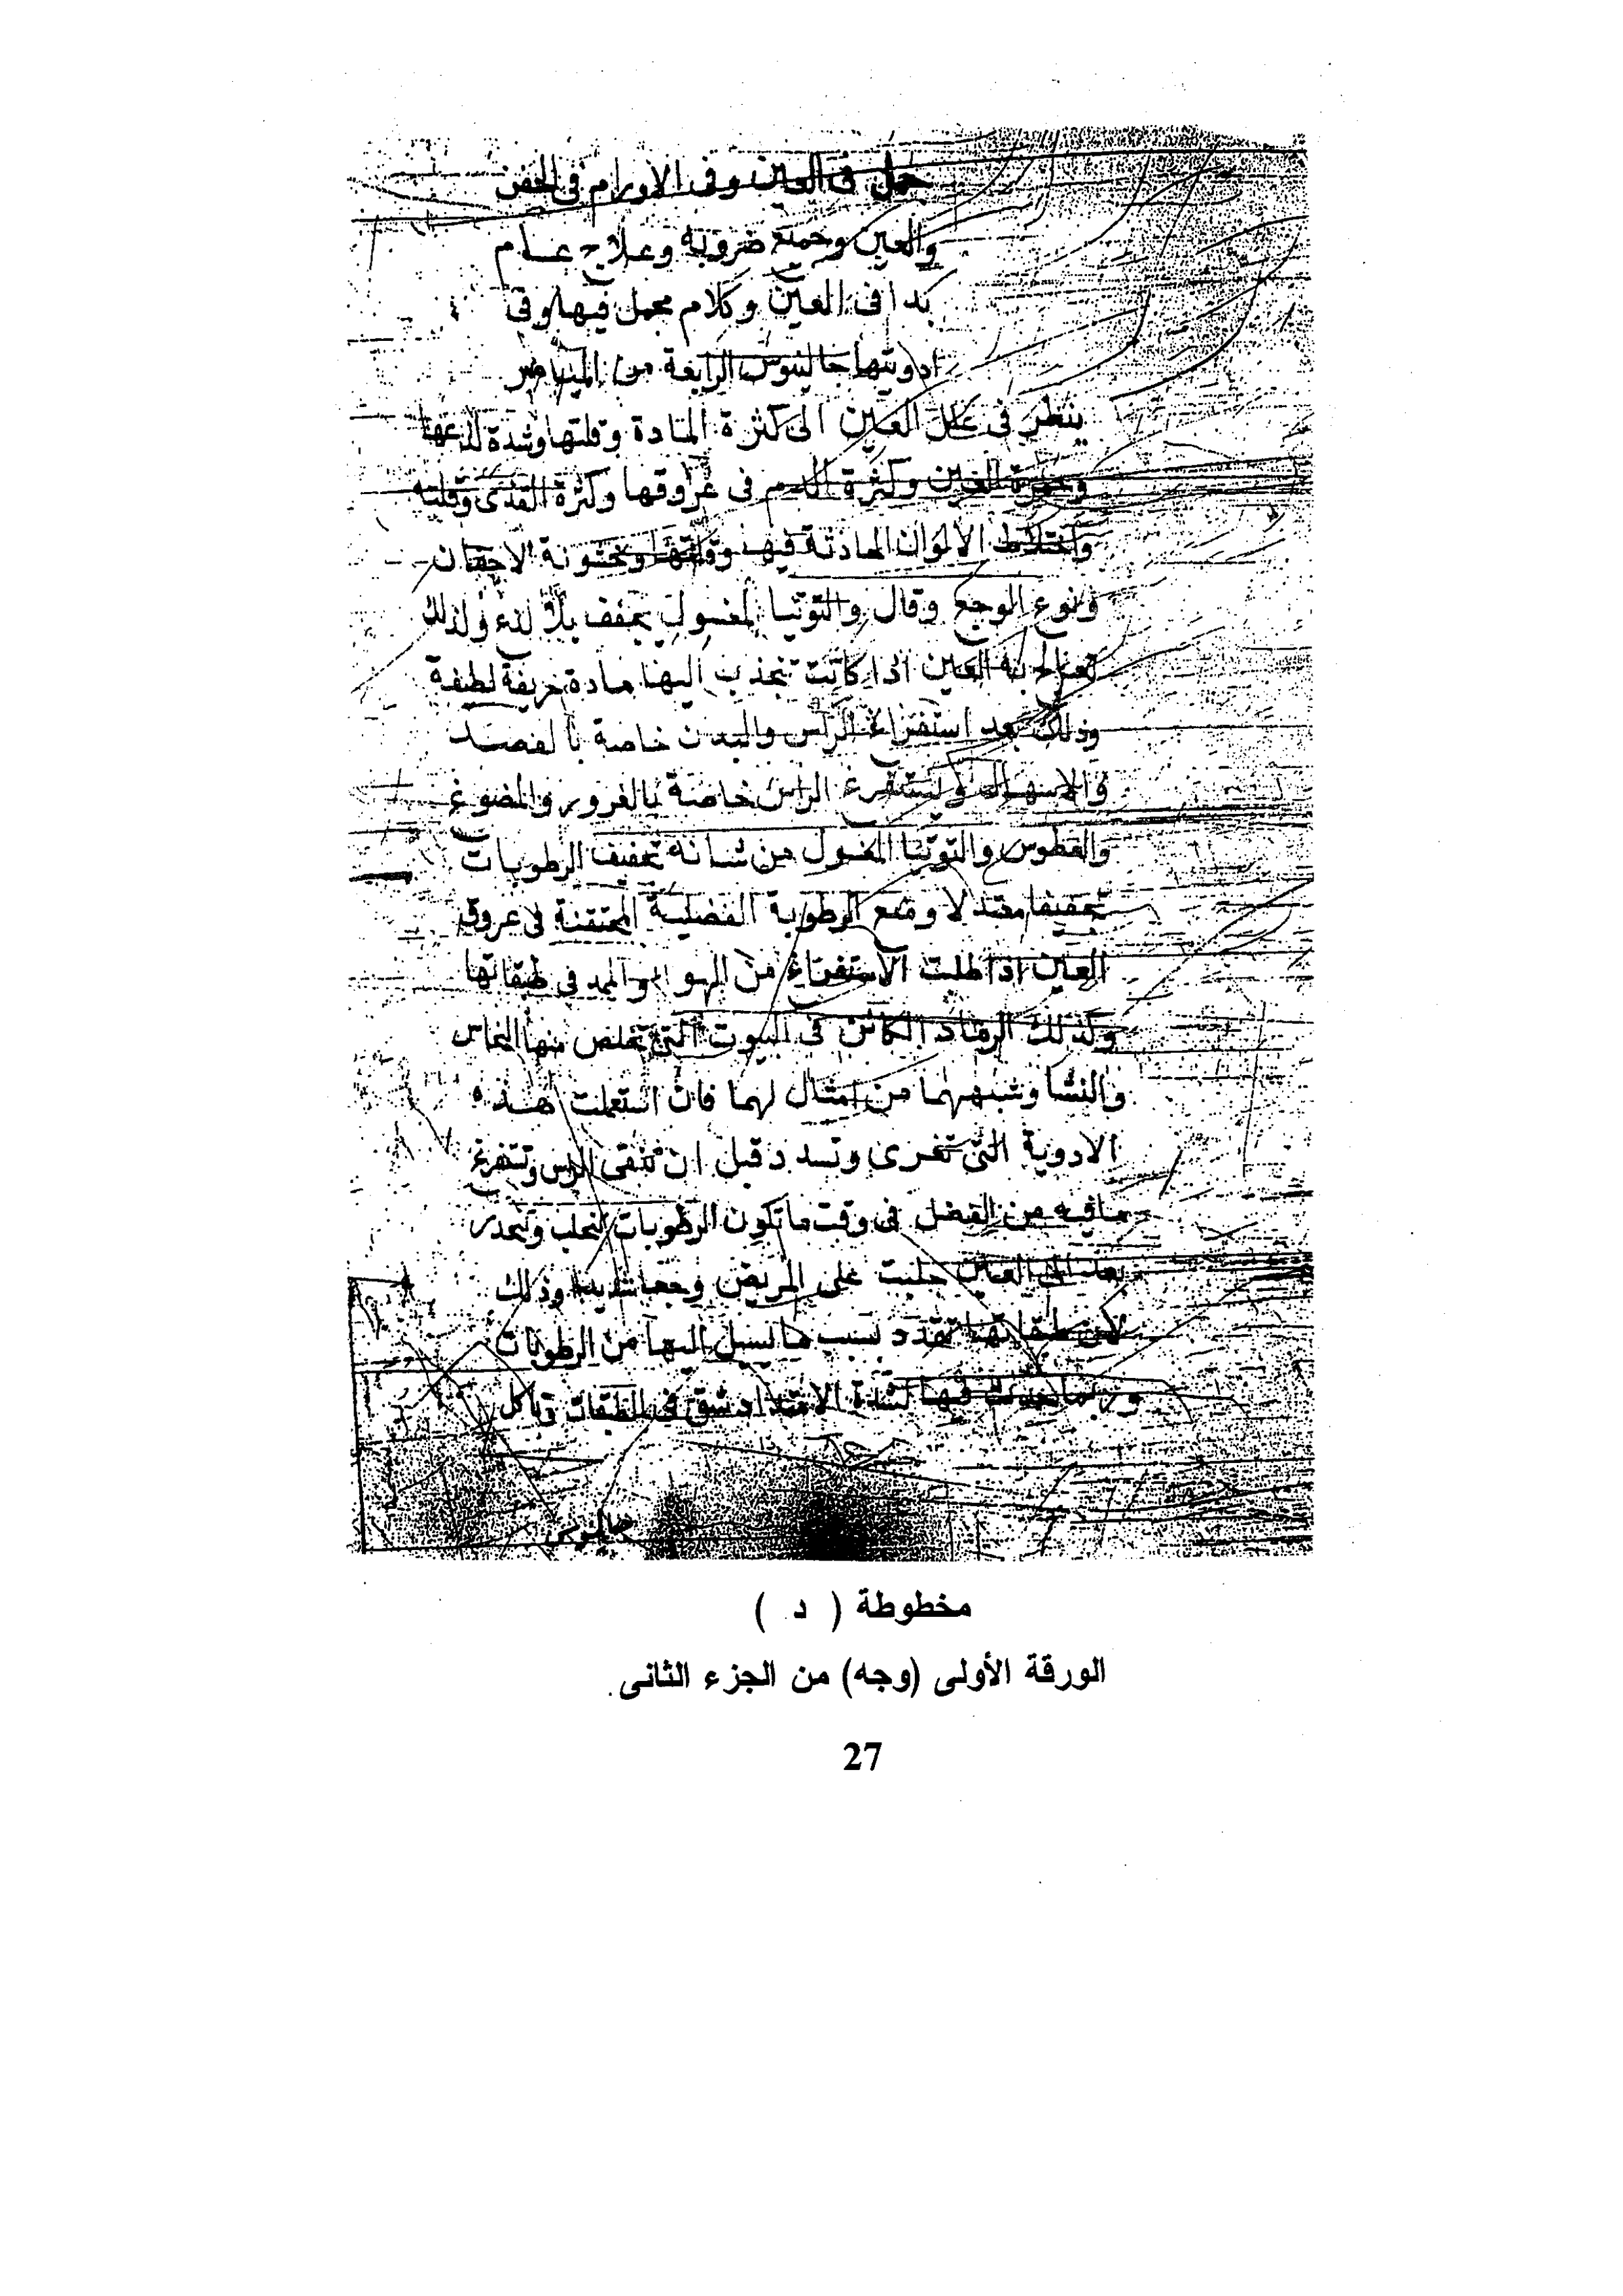 جمل فى العين وفى الاورام فى الجفن
والعين وجميع ضروبه وعلاج عام
بدا فى العين وكلام مجمل فيها وفى
ادويتها جالينوس الرابعة من الميامر
ينظر فى علل العين الى كثرة المادة وقلتها وشدة لذعها
وحمرة العين وكثرة الدم فى عروقها وكثرة القذى وقلته
واختلاط الألوان الحادثة فيها وخشونة الاجفان
ونوع الوجع وقال والتوتيا المغسول يجفف بلا لذع ولذلك
تعالج به العين اذا كانت تنجذب اليها مادة حريفة لطيفة
وذلك بعد استفراغ الرأس والبدن خاصة بالفصد
والاسهال ويستفرغ الراس خاصة بالغرور والمضوغ
والعطوس والتوتيا المغسول من شانه تجفيف الرطوبات
تجفيفا معتدلا ومنع الرطوبة الفضلية المحتقنة فى عروق
العين اذا طلبت الاستفراغ من فى طبقاتها
وكذلك الرماد الكائن فى البيوت التى يخلص منها النحاس
والنشا وشبههما من امثال لهما فان استعملت هذه
الادوية التى تغرى وتسدد قبل ان تنقى الراس وتستفرغ
مافيه من الفضل فى وقت ماتكون الرطوبات تتحلب وتنحدر
بعد الى العين جلبت على المريض وجعا شديدا وذلك
لان طبقاتها تمدد بسبب ما يسيل اليها من الرطوبات
وربما حدث فيها لشدة الامتداد شق فى الطبقات وتاكل
جالينوس
مخطوطة ( د )
الورقة الأولى (وجه) من الجزء الثانى.
27